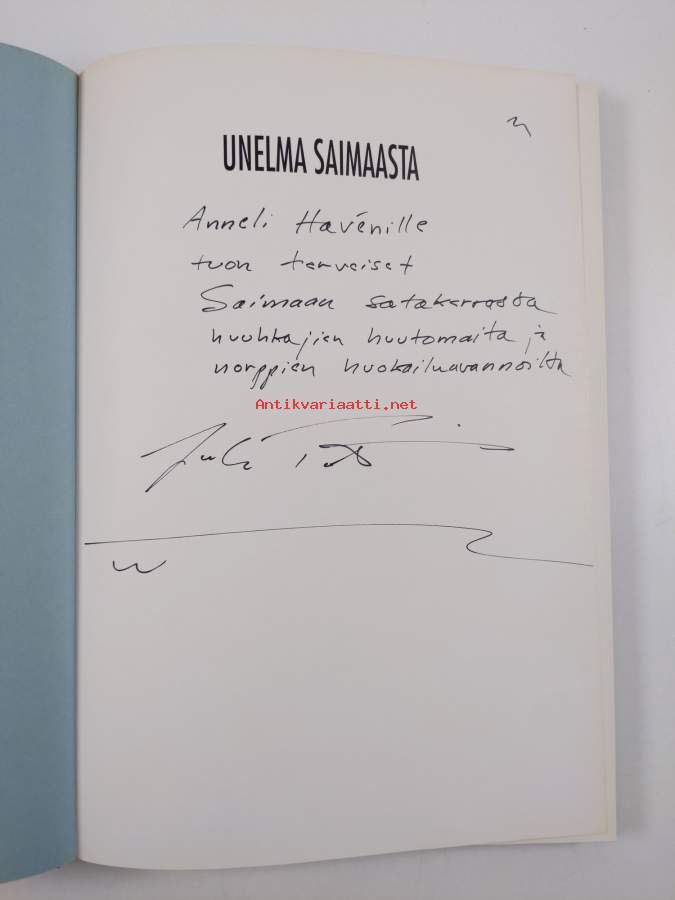 UNELMA SAIMAASTA
Anneli Havénille
tuon terveiset
Saimaan satakerrosta
huuhkajien huutomailta ja
norppien huokailuavannoilta
Antikvariaatti.net